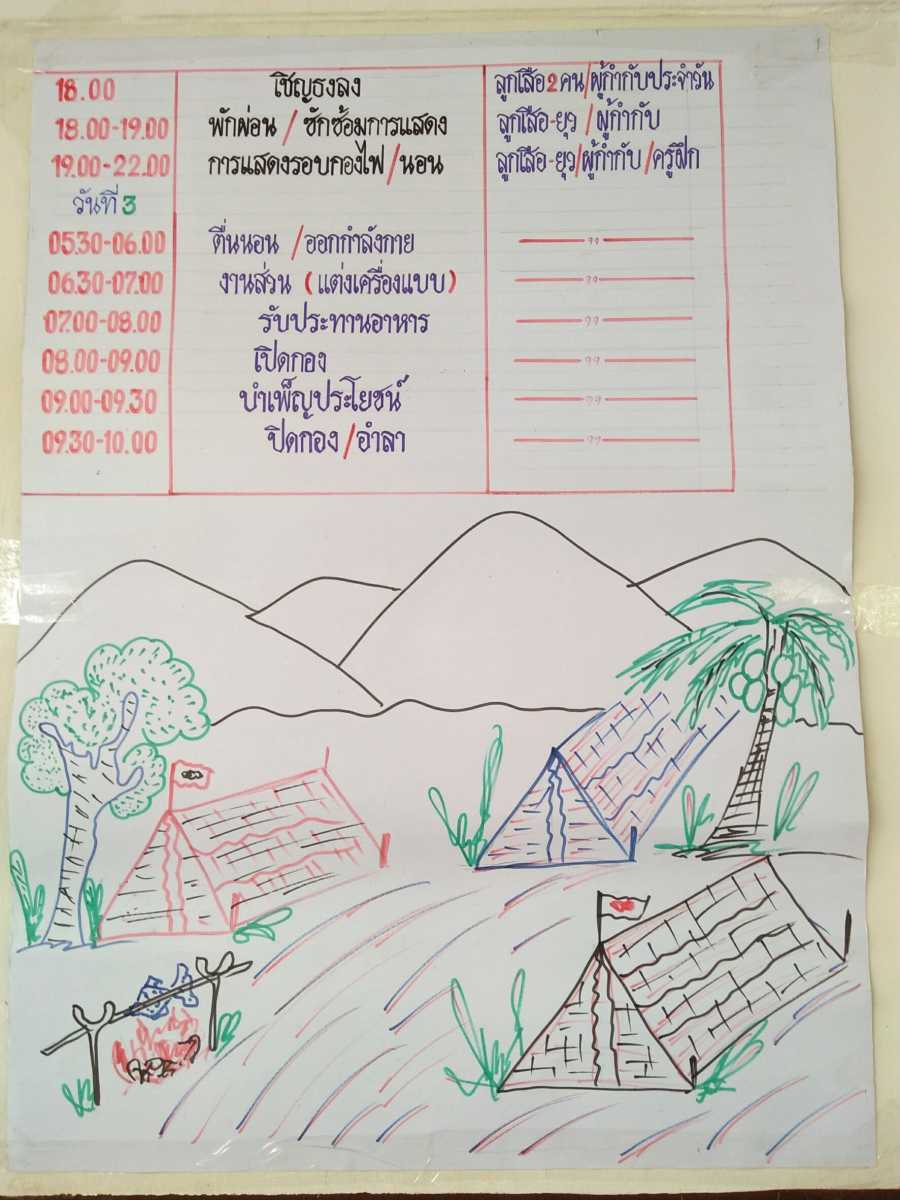 18.00 เชิญธงลง ลูกเสือ 2 คน/ผู้กำกับประจำวัน
18.00-19.00 พักผ่อน / ซักซ้อมการแสดง ลูกเสือ-ยุว / ผู้กำกับ
19.00-22.00 การแสดงรอบกองไฟ/นอน ลูกเสือ-ยุว/ผู้กำกับ/ครูฝึก
วันที่ 3
05.30-06.00 ตื่นนอน /ออกกำลังกาย —„—
06.30-07.00 งานส่วน (แต่งเครื่องแบบ) —„—
07.00-08.00 รับประทานอาหาร —„—
08.00-09.00 เปิดกอง —„—
09.00-09.30 บำเพ็ญประโยชน์ —„—
09.30-10.00 ปิดกอง/อำลา —„—